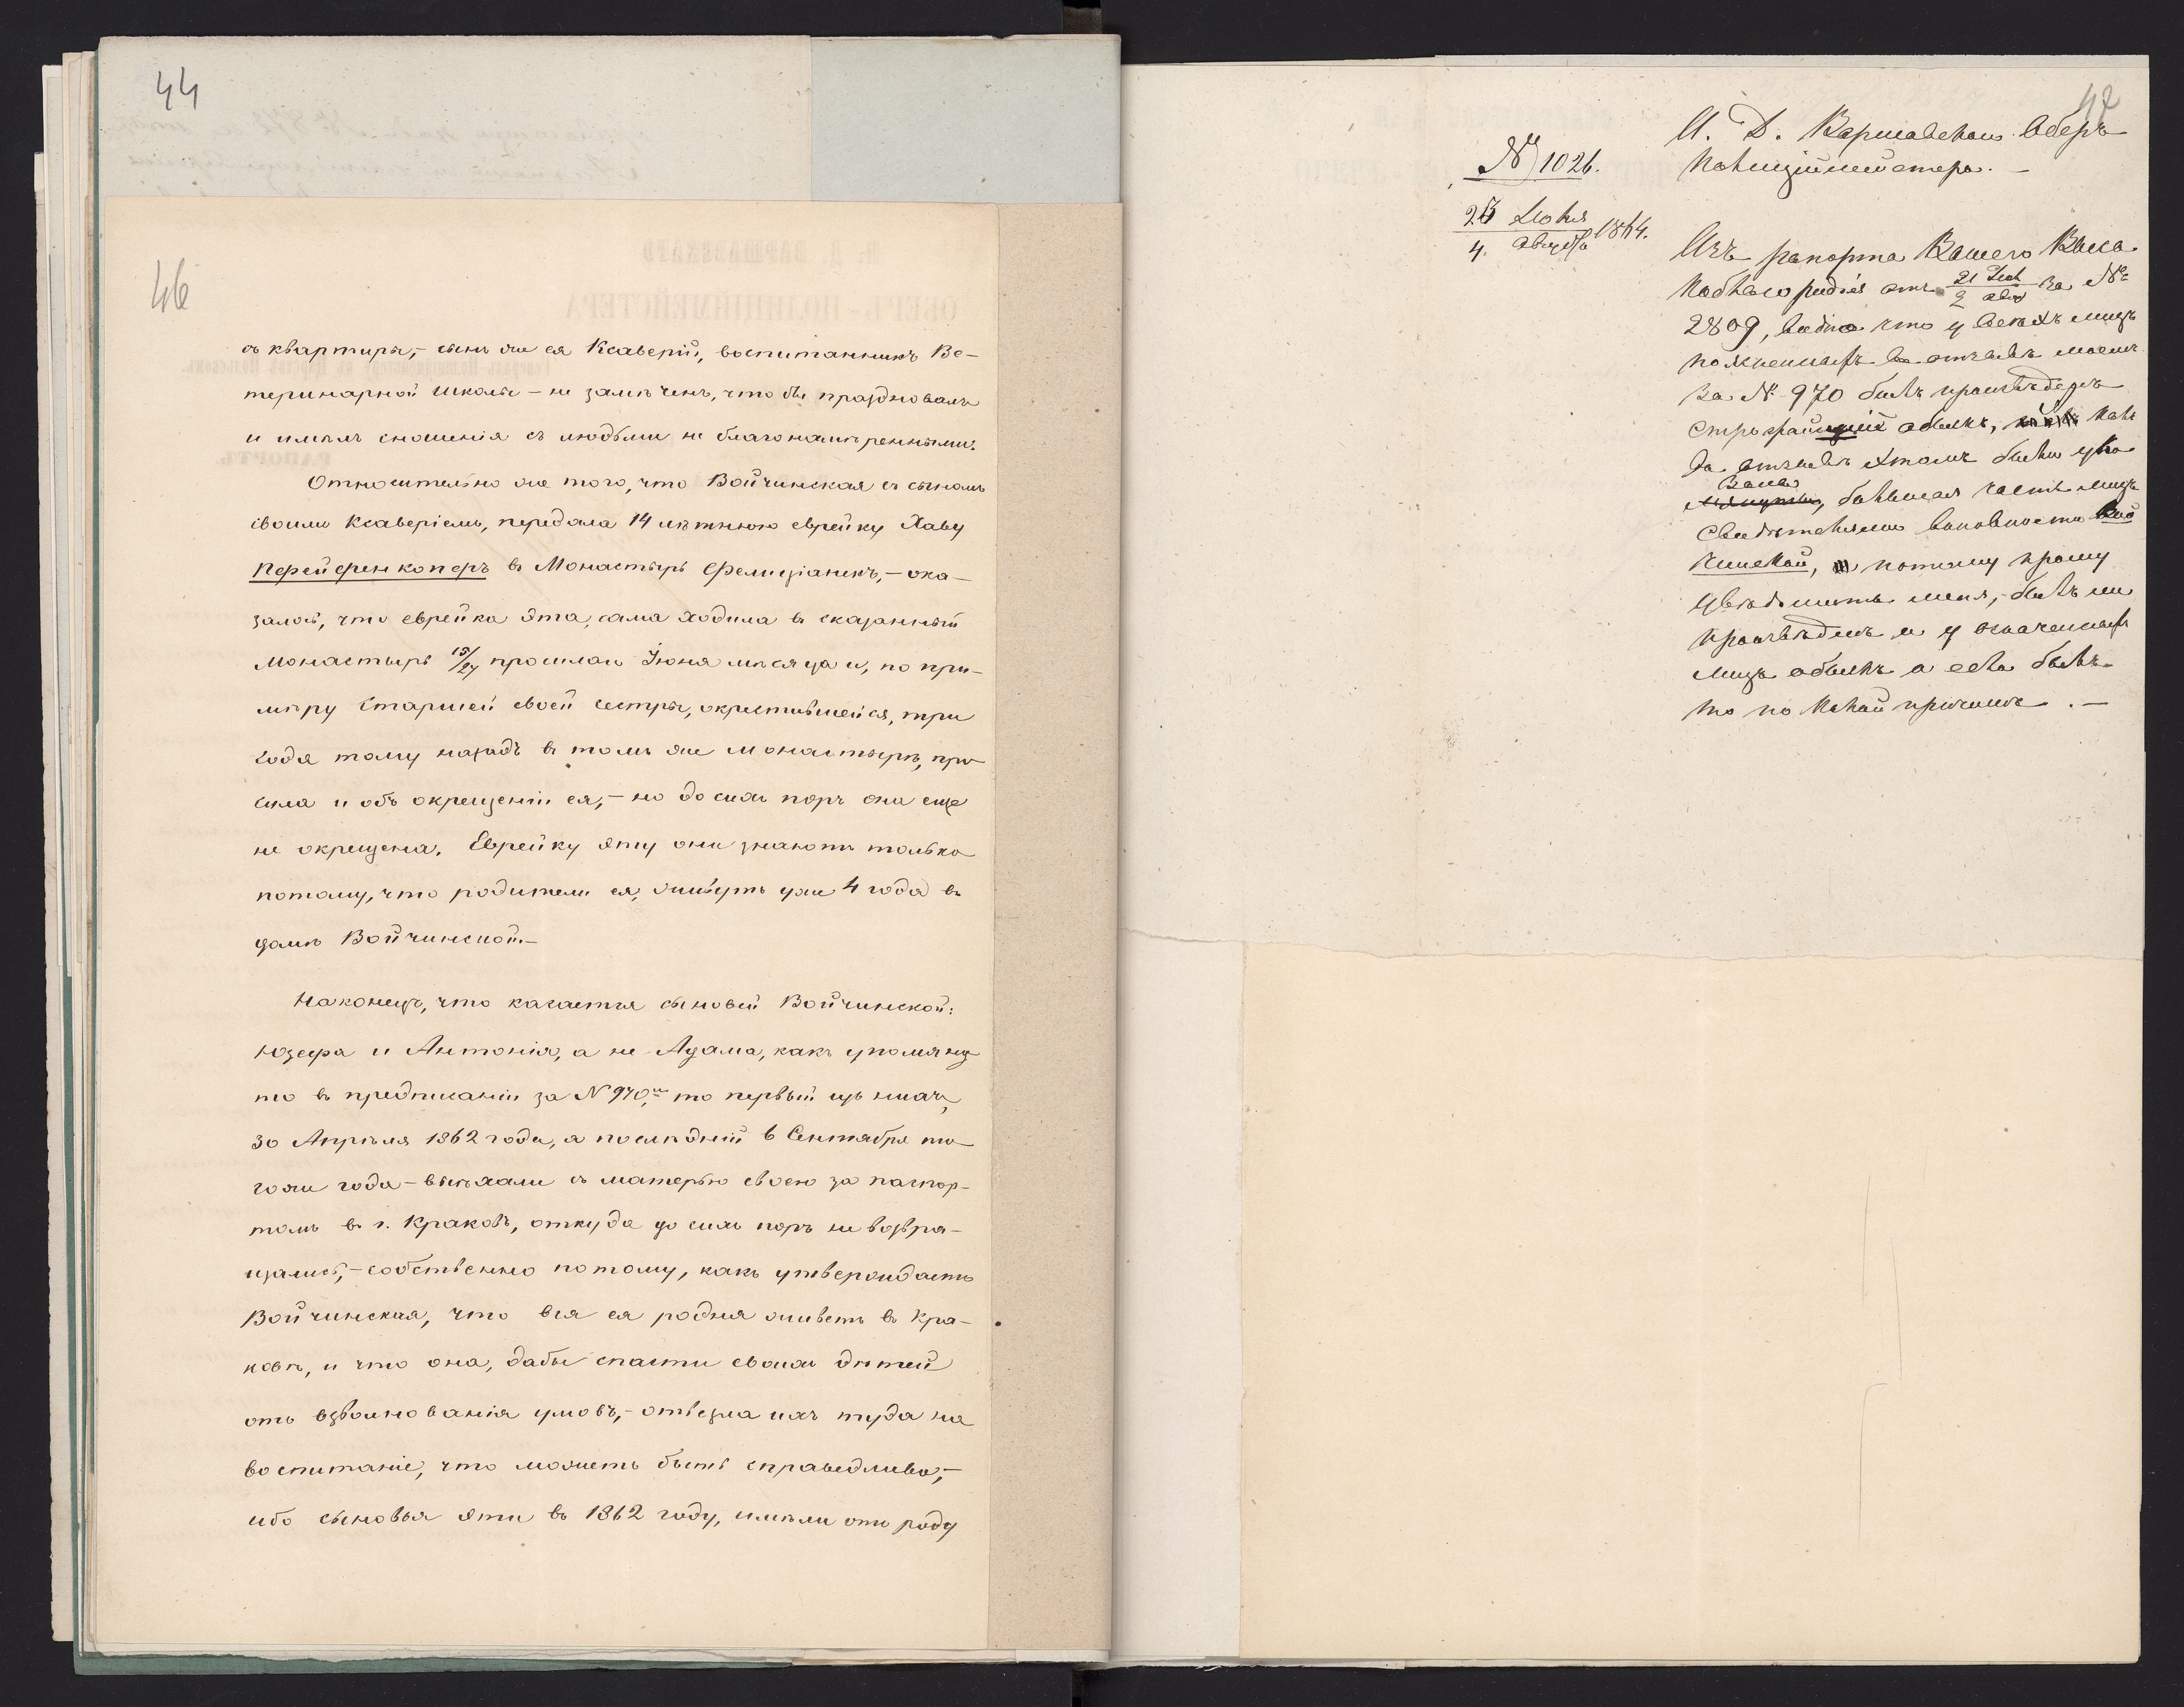 44
46
съ квартиры,- сынъ же ея Ксаверій, воспитанникъ Ве-
теринарной школы - не замѣченъ, что бы праздновалъ
и имѣлъ сношенія съ людьми не благонамѣренными.
Относительно же того, что Войчинская съ сыномъ
своимъ Ксаверіемъ, передала 14 лѣтнюю еврейку Хаву
Перейференкоперъ въ Монастырь Фелиціанекъ,- ока-
залось, что еврейка эта, сама ходила въ сказанный
Монастырь 15/27 прошлаго Іюня мѣсяца и, по при-
мѣру старшей своей сестры, окрестившейся, три
года тому назадъ въ томъ же монастырѣ, про-
сила и объ окрещеніи ея,- но до сихъ поръ она еще
не окрещена. Еврейку эту они знаютъ только
потому, что родители ея, живутъ уже 4 года въ
домѣ Войчинской.-
Наконецъ, что касается сыновей Войчинской:
Юзефа и Антонія, а не Адама, какъ упомяну
то въ предписаніи за N 970, то первый изъ нихъ,
30 Апрѣля 1862 года, а послѣдній 6 Сентября то-
гоже года - выѣхали съ матерью своею за паспор-
томъ въ г. Краковъ, откуда до сихъ поръ не возвра-
щались,- собственно потому, какъ утверждаетъ
Войчинская, что вся ея родня живетъ въ Кра-
ковѣ, и что она, дабы спасти своихъ дѣтей
отъ взволнованія умовъ,- отвезла ихъ туда на
воспитаніе, что можетъ быть справедливо,-
ибо сыновья эти въ 1862 году, имѣли отъ роду
47
И. Д. Варшавскаго Оберъ
Полиціймейстера.-
№ 1026.
23 Іюля
4 Августа 1864.
Изъ рапорта Вашего Высо
коблагородія отъ 21 Іюл/2 авг за №
2809, видно что у всѣхъ лицъ
поясненныхъ въ отзывѣ моемъ
за № 970 былъ произведенъ
строжайшій обыскъ,
да отзывѣ этомъ были
Вами, большая часть лицъ
свидѣтелями виновности Вой
чинской, потому прошу
увѣдомить меня,- былъ ли
произведенъ и у означенныхъ
лицъ обыскъ а если былъ
то по какой причинѣ.-